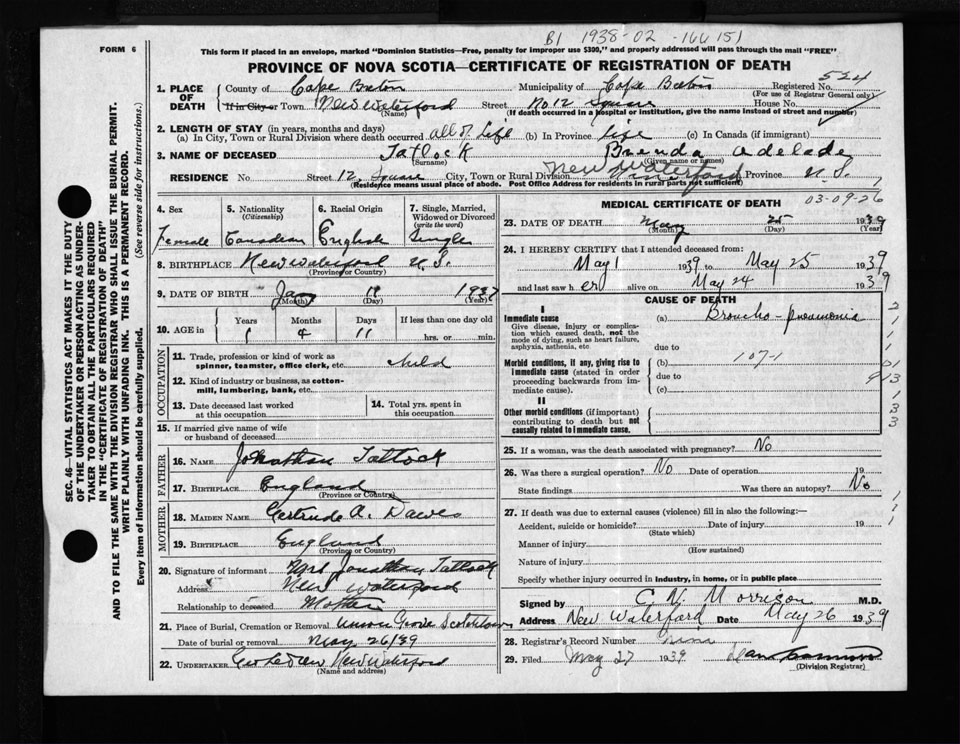 B1 1938-02 -166151
FORM 6
This form if placed in an envelope, marked "Dominion Statistics—Free, penalty for improper use $300," and properly addressed will pass through the mail "FREE"
PROVINCE OF NOVA SCOTIA—CERTIFICATE OF REGISTRATION OF DEATH
SEC. 46—VITAL STATISTICS ACT MAKES IT THE DUTY
OF THE UNDERTAKER OR PERSON ACTING AS UNDER-
TAKER TO OBTAIN ALL THE PARTICULARS REQUIRED
IN THE "CERTIFICATE OF REGISTRATION OF DEATH"
AND TO FILE THE SAME WITH THE DIVISION REGISTRAR WHO SHALL ISSUE THE BURIAL PERMIT.
WRITE PLAINLY WITH UNFADING INK. THIS IS A PERMANENT RECORD.
Every item of information should be carefully supplied. (See reverse side for instructions.)
524
1. PLACE OF DEATH County of Cape Breton Municipality of Cape Breton Registered No.
(For use of Registrar General only)
If in City or Town New Waterford Street No 12 Square House No.
(Name) (If death occurred in a hospital or institution, give the name instead of street and number)
2. LENGTH OF STAY (in years, months and days)
(a) In City, Town or Rural Division where death occurred all of Life (b) In Province life (c) In Canada (if immigrant)
3. NAME OF DECEASED Tatlock Brenda Adelade
(Surname) (Given name or names)
RESIDENCE No. Street 12 Square City, Town or Rural Division New Waterford Province N.S.
(Residence means usual place of abode. Post Office Address for residents in rural parts not sufficient)
4. Sex 5. Nationality (Citizenship) 6. Racial Origin 7. Single, Married, Widowed or Divorced (write the word)
Female Canadian English Single
8. BIRTHPLACE New Waterford N.S.
(Province or Country)
9. DATE OF BIRTH Jan 1937
(Month) (Day) (Year)
10. AGE in Years Months Days If less than one day old
1 4 11 hrs. or min.
OCCUPATION
11. Trade, profession or kind of work as spinner, teamster, office clerk, etc. child
12. Kind of industry or business, as cotton-mill, lumbering, bank, etc.
13. Date deceased last worked at this occupation
14. Total yrs. spent in this occupation
15. If married give name of wife or husband of deceased
FATHER
16. NAME Jonathan Tatlock
17. BIRTHPLACE England
(Province or Country)
MOTHER
18. MAIDEN NAME Gertrude A. Dawes
19. BIRTHPLACE England
(Province or Country)
20. Signature of informant Mrs Jonathan Tatlock
Address New Waterford
Relationship to deceased Mother
21. Place of Burial, Cremation or Removal Union Grove Scotchtown
Date of burial or removal May 26/39
22. UNDERTAKER New Waterford
(Name and address)
MEDICAL CERTIFICATE OF DEATH 03-09-26
23. DATE OF DEATH May 25 1939
(Month) (Day) (Year)
24. I HEREBY CERTIFY that I attended deceased from:
May 1 1939 to May 25 1939
and last saw h er alive on May 24 1939
CAUSE OF DEATH
I
Immediate cause (a) Broncho-pneumonia
Give disease, injury or complication which caused death, not the mode of dying, such as heart failure, asphyxia, asthenia, etc due to
Morbid conditions, if any, giving rise to immediate cause (stated in order proceeding backwards from immediate cause). (b) 107-1
due to
(c)
II
Other morbid conditions (if important) contributing to death but not causally related to immediate cause.
25. If a woman, was the death associated with pregnancy? No
26. Was there a surgical operation? No Date of operation 19
State findings Was there an autopsy? No
27. If death was due to external causes (violence) fill in also the following:—
Accident, suicide or homicide? Date of injury 19
(State which)
Manner of injury
(How sustained)
Nature of injury
Specify whether injury occurred in industry, in home, or in public place
Signed by C N Morrison M.D.
Address New Waterford Date May 26 1939
28. Registrar's Record Number
29. Filed May 27 1939
(Division Registrar)